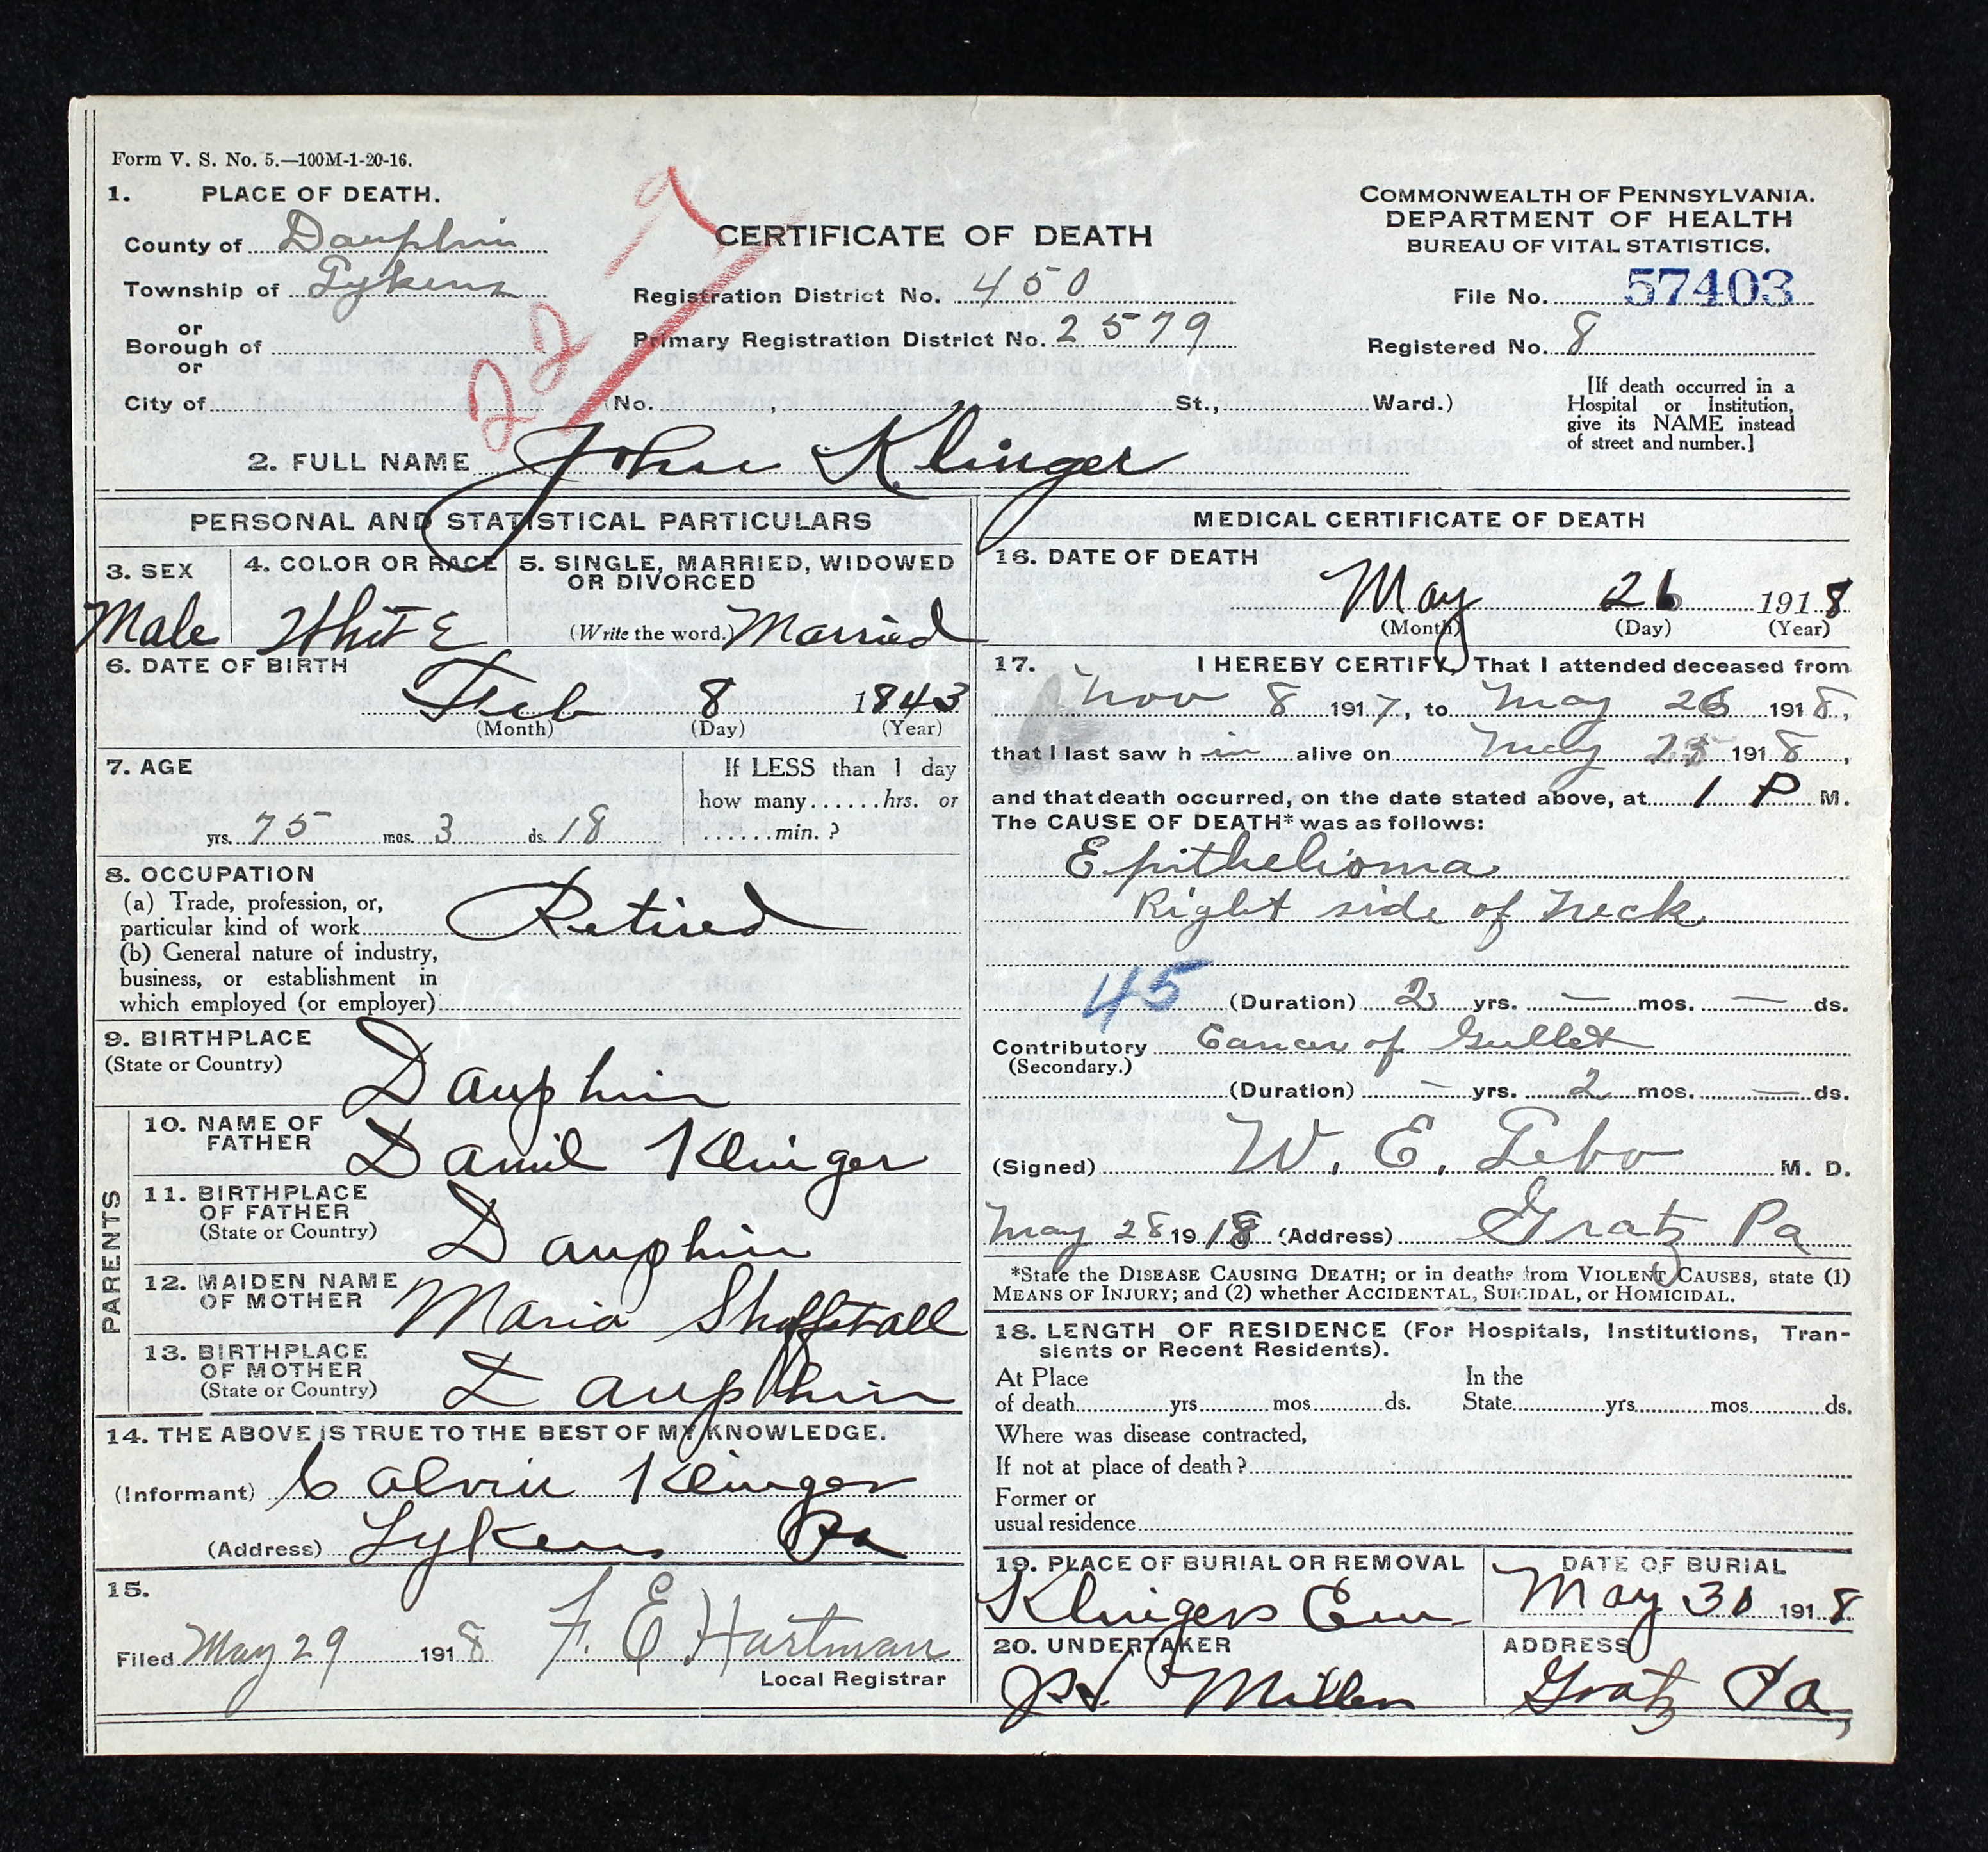 Form V. S. No. 5.—100M-1-20-16.
1. PLACE OF DEATH.
County of Dauphin
Township of Lykens
or
Borough of
or
City of
229
CERTIFICATE OF DEATH
Registration District No. 450
Primary Registration District No. 2579
(No. , St., Ward.)
COMMONWEALTH OF PENNSYLVANIA.
DEPARTMENT OF HEALTH
BUREAU OF VITAL STATISTICS.
File No. 57403
Registered No. 8
[If death occurred in a
Hospital or Institution,
give its NAME instead
of street and number.]
2. FULL NAME John K. Klinger
PERSONAL AND STATISTICAL PARTICULARS
3. SEX
Male
4. COLOR OR RACE
White
5. SINGLE, MARRIED, WIDOWED
OR DIVORCED
(Write the word.) Married
6. DATE OF BIRTH
Feb 8 1843
(Month) (Day) (Year)
7. AGE
yrs. 75 mos. 3 ds. 18
If LESS than 1 day
how many......hrs. or
......min.?
8. OCCUPATION
(a) Trade, profession, or,
particular kind of work Retired
(b) General nature of industry,
business, or establishment in
which employed (or employer)
9. BIRTHPLACE
(State or Country)
Dauphin
PARENTS
10. NAME OF
FATHER
Daniel Klinger
11. BIRTHPLACE
OF FATHER
(State or Country)
Dauphin
12. MAIDEN NAME
OF MOTHER
Maria Shoffstall
13. BIRTHPLACE
OF MOTHER
(State or Country)
Dauphin
14. THE ABOVE IS TRUE TO THE BEST OF MY KNOWLEDGE.
(Informant) Calvin Klinger
(Address) Lykens Pa
15.
Filed May 29 1918 F. E. Hartman
Local Registrar
MEDICAL CERTIFICATE OF DEATH
16. DATE OF DEATH
May 26 1918
(Month) (Day) (Year)
17. I HEREBY CERTIFY, That I attended deceased from
Nov 8 1917, to May 26 1918,
that I last saw h im alive on May 25 1918,
and that death occurred, on the date stated above, at 1 P M.
The CAUSE OF DEATH* was as follows:
Epithelioma
Right side of Neck
45
(Duration) 2 yrs. — mos. — ds.
Contributory Cancer of Gullet
(Secondary.)
(Duration) — yrs. 2 mos. — ds.
(Signed) W. E. Lebo M. D.
May 28 1918 (Address) Gratz Pa
*State the DISEASE CAUSING DEATH; or in deaths from VIOLENT CAUSES, state (1)
MEANS OF INJURY; and (2) whether ACCIDENTAL, SUICIDAL, or HOMICIDAL.
18. LENGTH OF RESIDENCE (For Hospitals, Institutions, Tran-
sients or Recent Residents).
At Place In the
of death yrs. mos. ds. State yrs. mos. ds.
Where was disease contracted,
If not at place of death?
Former or
usual residence
19. PLACE OF BURIAL OR REMOVAL
Klingers Cem
DATE OF BURIAL
May 30 1918
20. UNDERTAKER
Miller
ADDRESS
Gratz Pa,